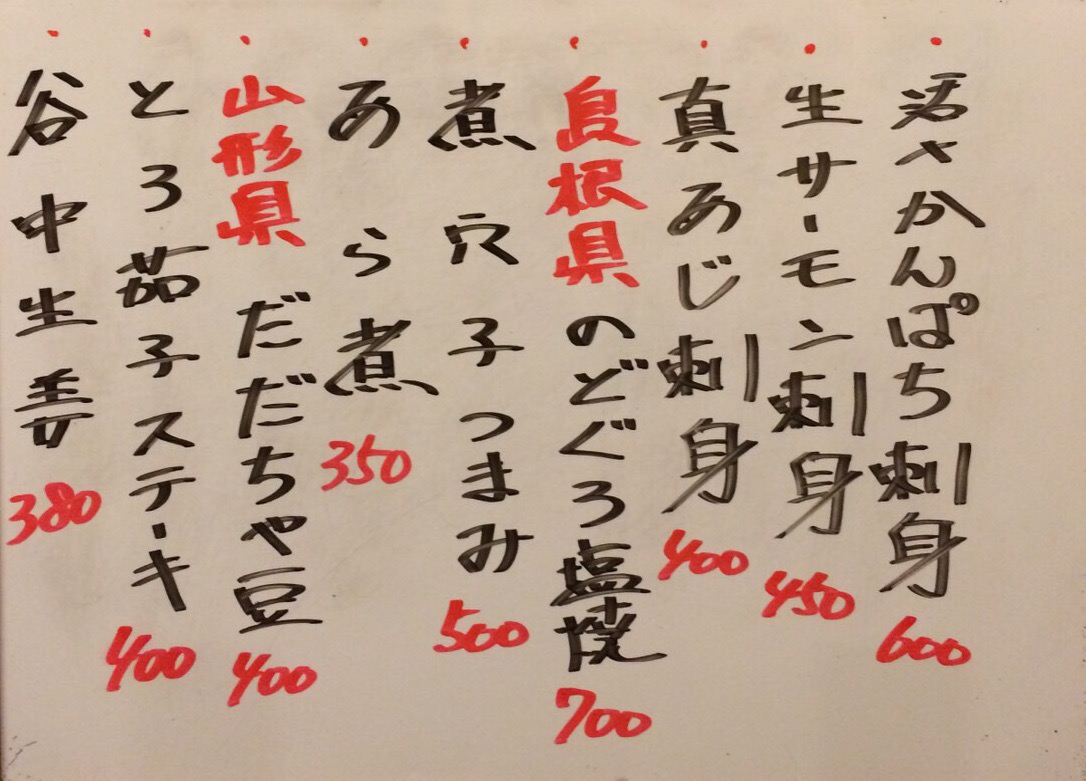 活〆かんぱち刺身 600
生サーモン刺身 450
真あじ刺身 400
島根県のどぐろ塩焼 700
煮穴子つまみ 500
あら煮 350
山形県だだちゃ豆 400
とろ茄子ステーキ 400
谷中生姜 380